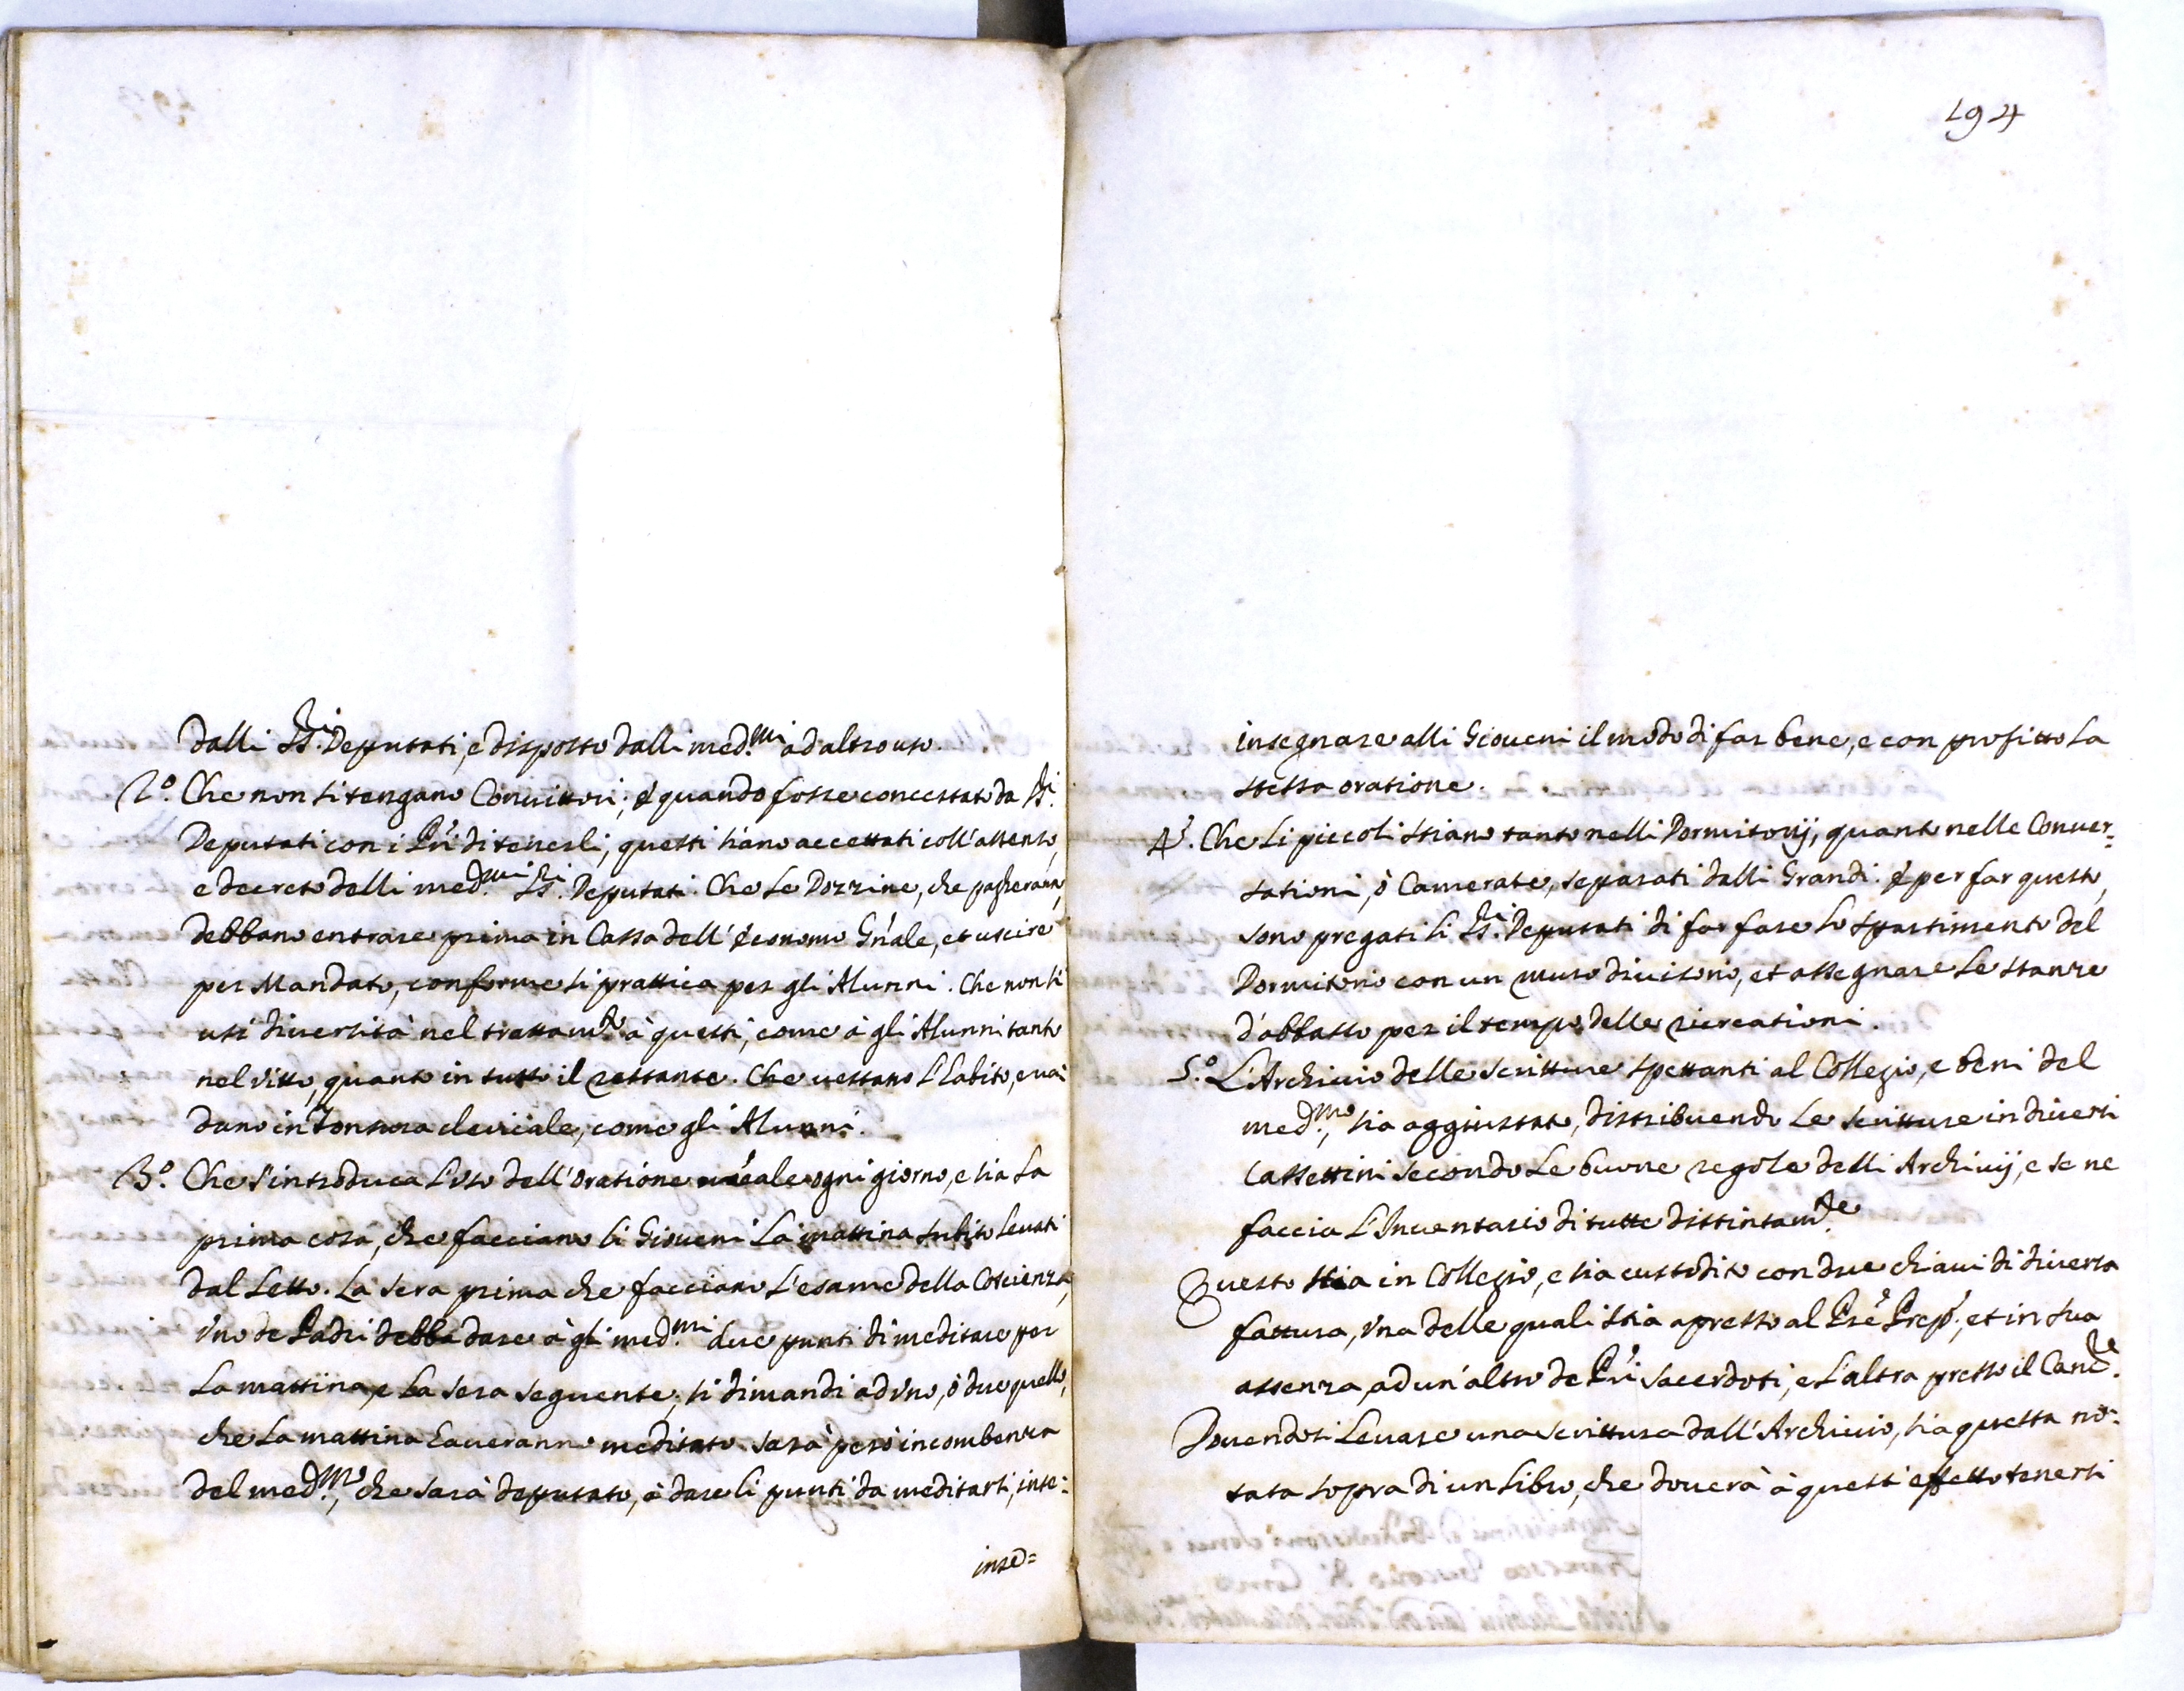 dalli SS.ri Deputati, e disposto dalli med.mi ad altro uso.
2.° Che non si tengano Convittori; e quando fosse concertato da SS.ri
Deputati con i P̃ri di tenerli; questi siano accettati coll'assenso,
e decreto delli med.mi SS.ri Deputati. Che le Dozzine, che pagheranno,
debbano entrare prima in Cassa dell'Economo Gñale, et uscire
per Mandato, conforme si prattica per gli Alunni. Che non si
usi diversità nel trattam.to à questi, come à gli Alunni tanto
nel vitto, quanto in tutto il restante. Che vestano l'habito, e va=
dano in Tonsura clericale, come gli Alunni.
3.° Che s'introduca l'uso dell'oratione ogni giorno, e sia la
prima cosa, che facciano li Gioveni la mattina subito levati
dal letto. La sera prima che facciano l'esame della Coscienza,
uno de Padri debba dare à gli med.mi due punti di meditare per
la mattina, e la sera seguente, si dimandi ad uno, ò due quello,
che la mattina haveranno meditato. sarà però incombenza
del med.mo, che sarà deputato, à dare li punti da meditarsi, inse=
inse=
194
insegnare alli Gioveni il modo di far bene, e con profitto la
stessa oratione.
4.° Che li piccoli stiano tanto nelli Dormitorij, quanto nelle Conver=
sationi, ò Camerate, separati dalli Grandi. e per far questo,
sono pregati li SS.ri Deputati di far fare lo spartimento del
Dormitorio con un muro divisorio, et assegnare le stanze
d'abbasso per il tempo delle ricreationi.
5.° L'Archivio delle scritture spettanti al Collegio, e beni del
med.mo, sia aggiustato, distribuendo le scritture in diversi
Cassettini secondo le buone regole delli Archivij, e se ne
faccia l'Inventario di tutte distintam.te
Questo stia in Collegio, e sia custodito con due chiavi di diversa
fattura, una delle quali stia apresso al P̃re Prep.°, et in sua
assenza, ad un'altro de P̃ri Sacerdoti, e l'altra presso il Canc.re
Dovendosi levare una scrittura dall'Archivio, sia questa no=
tata sopra di un libro, che doverà à questi effetto tenersi